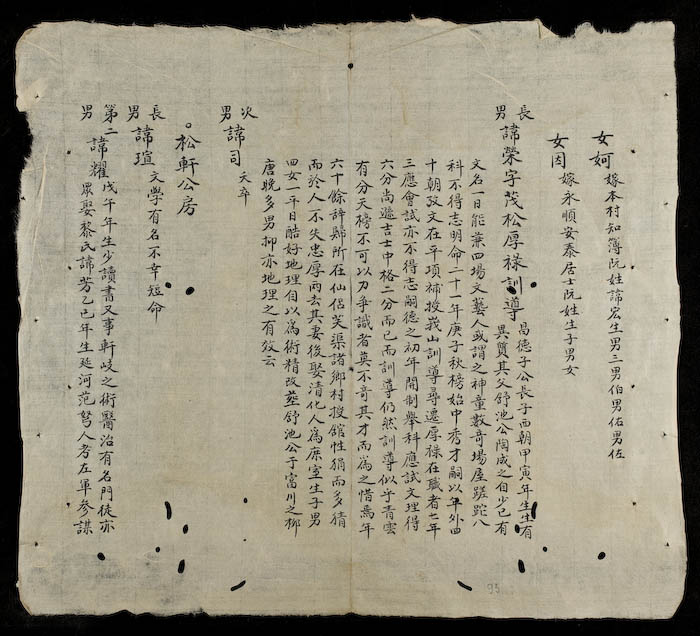 女妸 嫁本村知簿阮姓諱宏生男三男伯男佑男佐
女因 嫁永順安泰居士阮姓生子男女
長男 諱榮字茂松厚祿訓導 昌德子公長子西朝甲寅年生生有
異質其父舒池公陶成之自少已有
文名一日能兼四場文藝人或謂之神童數奇場屋蹉跎八
科不得志明命二十一年庚子秋榜始中秀才嗣以年外四
十朝攷文在平項補授峩山訓導尋遷厚祿在職者七年
三應會試亦不得志嗣德之初年開制舉科應試文理得
六分尚遜吉士中格二分而已而訓導仍然訓導似乎青雲
有分天榜不可以力爭識者莫不奇其才而爲之惜焉年
六十餘辞縣所在仙侶芙渠諸鄉村授舘性狷而多猜
而於人不失忠厚両去其妻後娶清化人爲庶室生子男
四女一平日酷好地理自以爲術精改塟舒池公于富川之柳
唐晚多男抑亦地理之有效云
次男 諱司 夭卒
。松軒公房
長男 諱瑄 文學有名不幸短命
第二男 諱耀 戊午年生少讀書又事軒岐之術醫治有名門徒亦
眾娶黎氏諱芳乙巳年生延河范駑人考左軍參謀
95